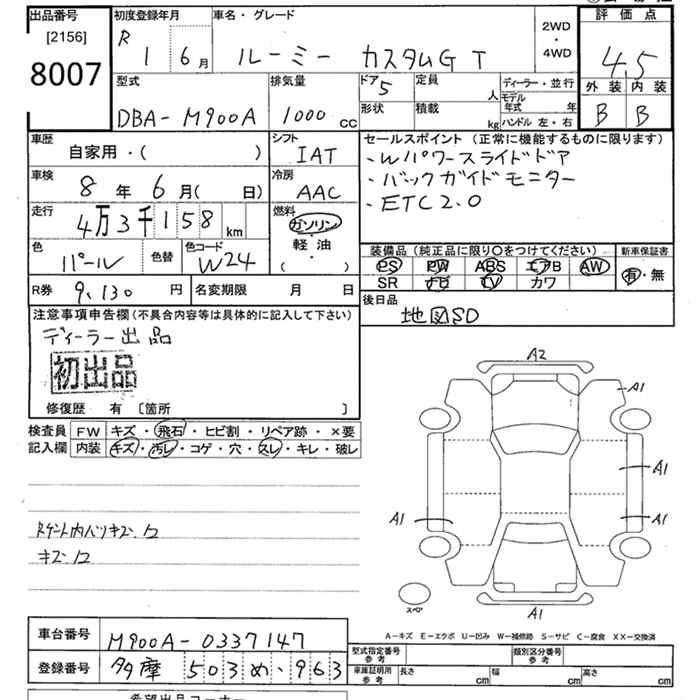 出品番号
[2156]
8007
初度登録年月
R 1 6月
車名・グレード
ルーミー カスタムG T
2WD
・
4WD
評価点
4.5
外装 内装
B B
型式
DBA-M900A
排気量
1000 CC
ドア 5
形状
定員 人
積載 kg
ディーラー・並行
モデル年式 年
ハンドル 左・右
車歴
自家用・( )
シフト
IAT
車検
8年 6月( 日)
冷房
AAC
走行
4万3千158km
燃料
ガソリン
・
軽油
( )
色
パール
色替
色コード
W24
R券 9,130 円
名変期限 月 日
セールスポイント (正常に機能するものに限ります)
・Wパワースライドドア
・バックガイドモニター
・ETC2.0
装備品(純正品に限り○をつけてください)
PS PW ABS エアB AW
SR ナビ TV カワ
新車保証書
有・無
後日品
地図SD
注意事項申告欄(不具合内容等は具体的に記入して下さい)
ディーラー出品
初出品
修復歴 有 〔箇所 〕
検査員記入欄
FW キズ・飛石・ヒビ割・リペア跡・×要
内装 キズ・汚レ・コゲ・穴・スレ・キレ・破レ
キズ小
A2
A1
A1
A1
A1
A1
スペア
A1
A-キズ E-エクボ U-凹み W-補修跡 S-サビ C-腐食 XX-交換済
車台番号 M900A-0337147
登録番号 多摩 503 め・963
型式指定番号 参考
類別区分番号 参考
車庫証明用 参考 長さ cm 幅 cm 高さ cm
希望出品コーナー